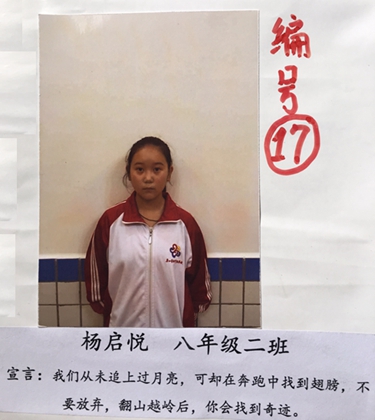 编号
17
杨启悦 八年级二班
宣言：我们从未追上过月亮，可却在奔跑中找到翅膀，不
要放弃，翻山越岭后，你会找到奇迹。